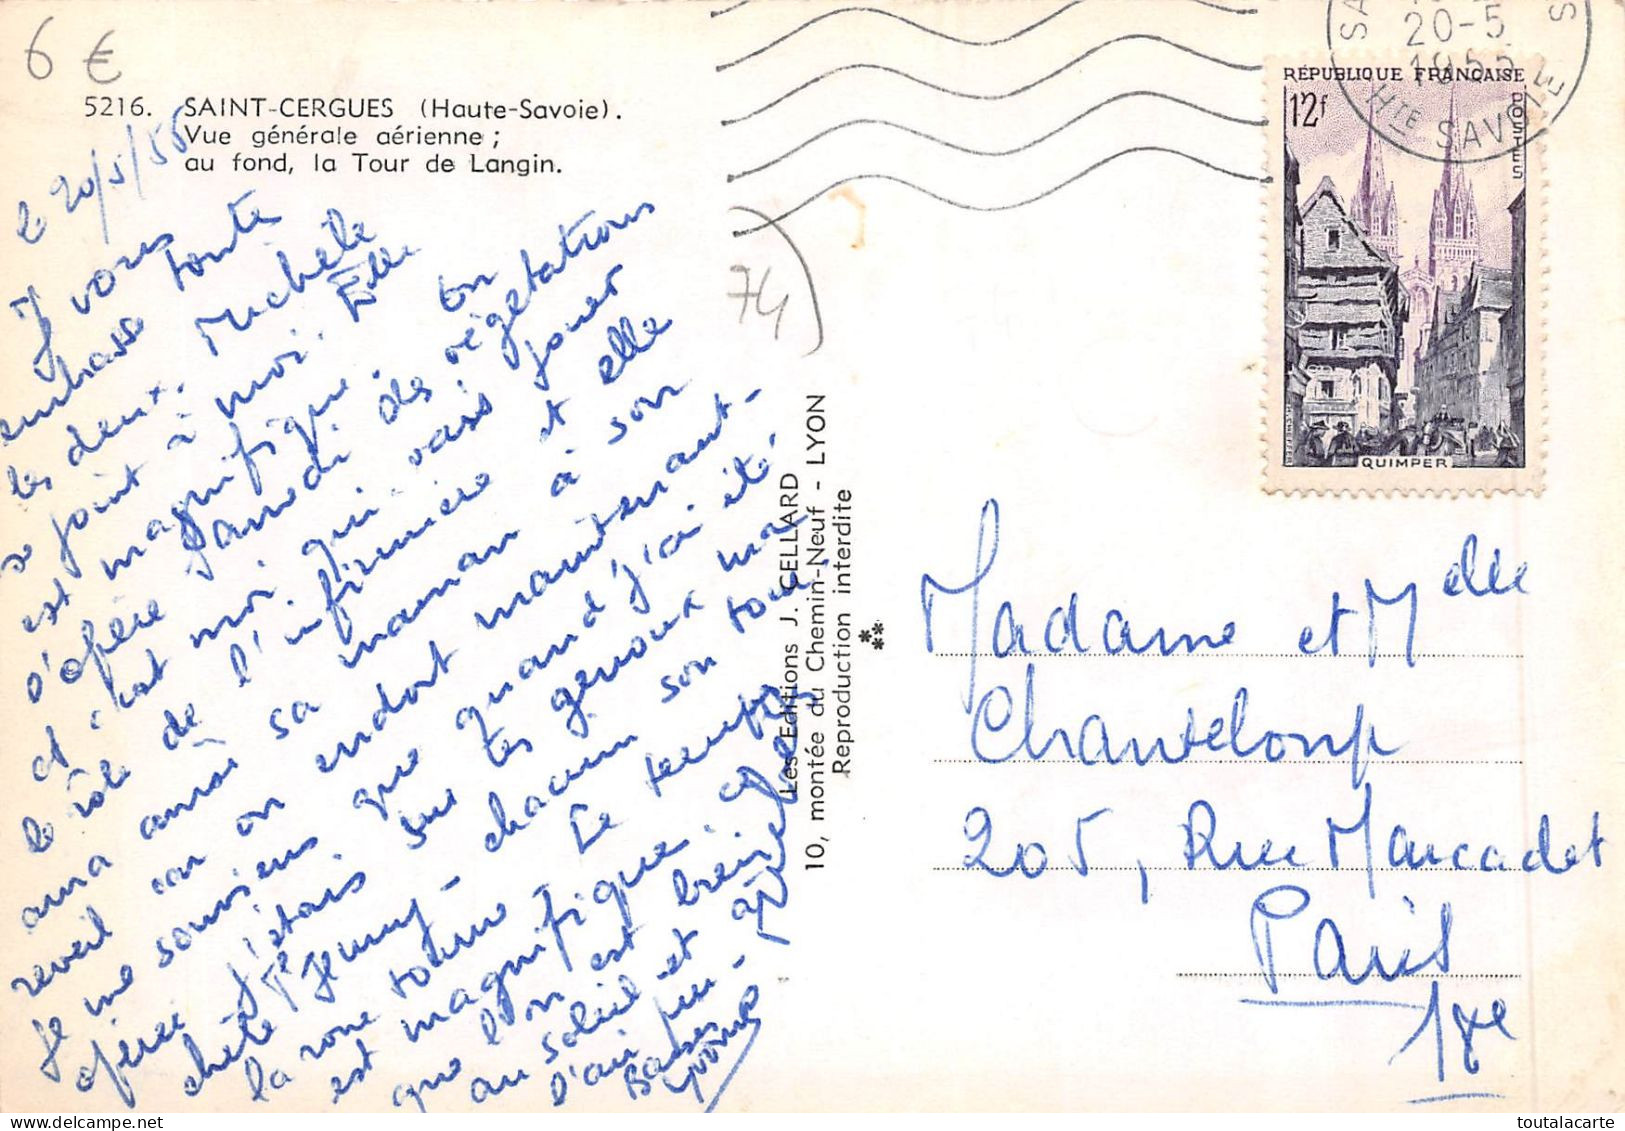 6 €
5216. SAINT-CERGUES (Haute-Savoie).
Vue générale aérienne ;
au fond, la Tour de Langin.
le 20/5/55
Je vous
embrasse toute
les deux. Michèle
se joint à moi. Elle
est magnifique. On
s'opère samedi des végétations
et c'est moi qui vais jouer
le rôle de l'infirmière et elle
aura ainsi sa maman à son
reveil car on endort maintenant -
Je me souviens que quand j'ai été
opérée j'étais sur tes genoux ma
chète Tte Jenny - chacun son tour,
la roue tourne - Le temps
est magnifique, ce
que l'on est bien
au soleil et
d'air pur -
Baisers
Yvonne
74
Les Editions J. CELLARD
10, montée du Chemin-Neuf - LYON
Reproduction interdite
20-5
1955
Hte SAVOIE
RÉPUBLIQUE FRANÇAISE
12f
POSTES
QUIMPER
Madame et Mdlle
Chanteloup
205, Rue Marcadet
Paris
18e
toutalacarte